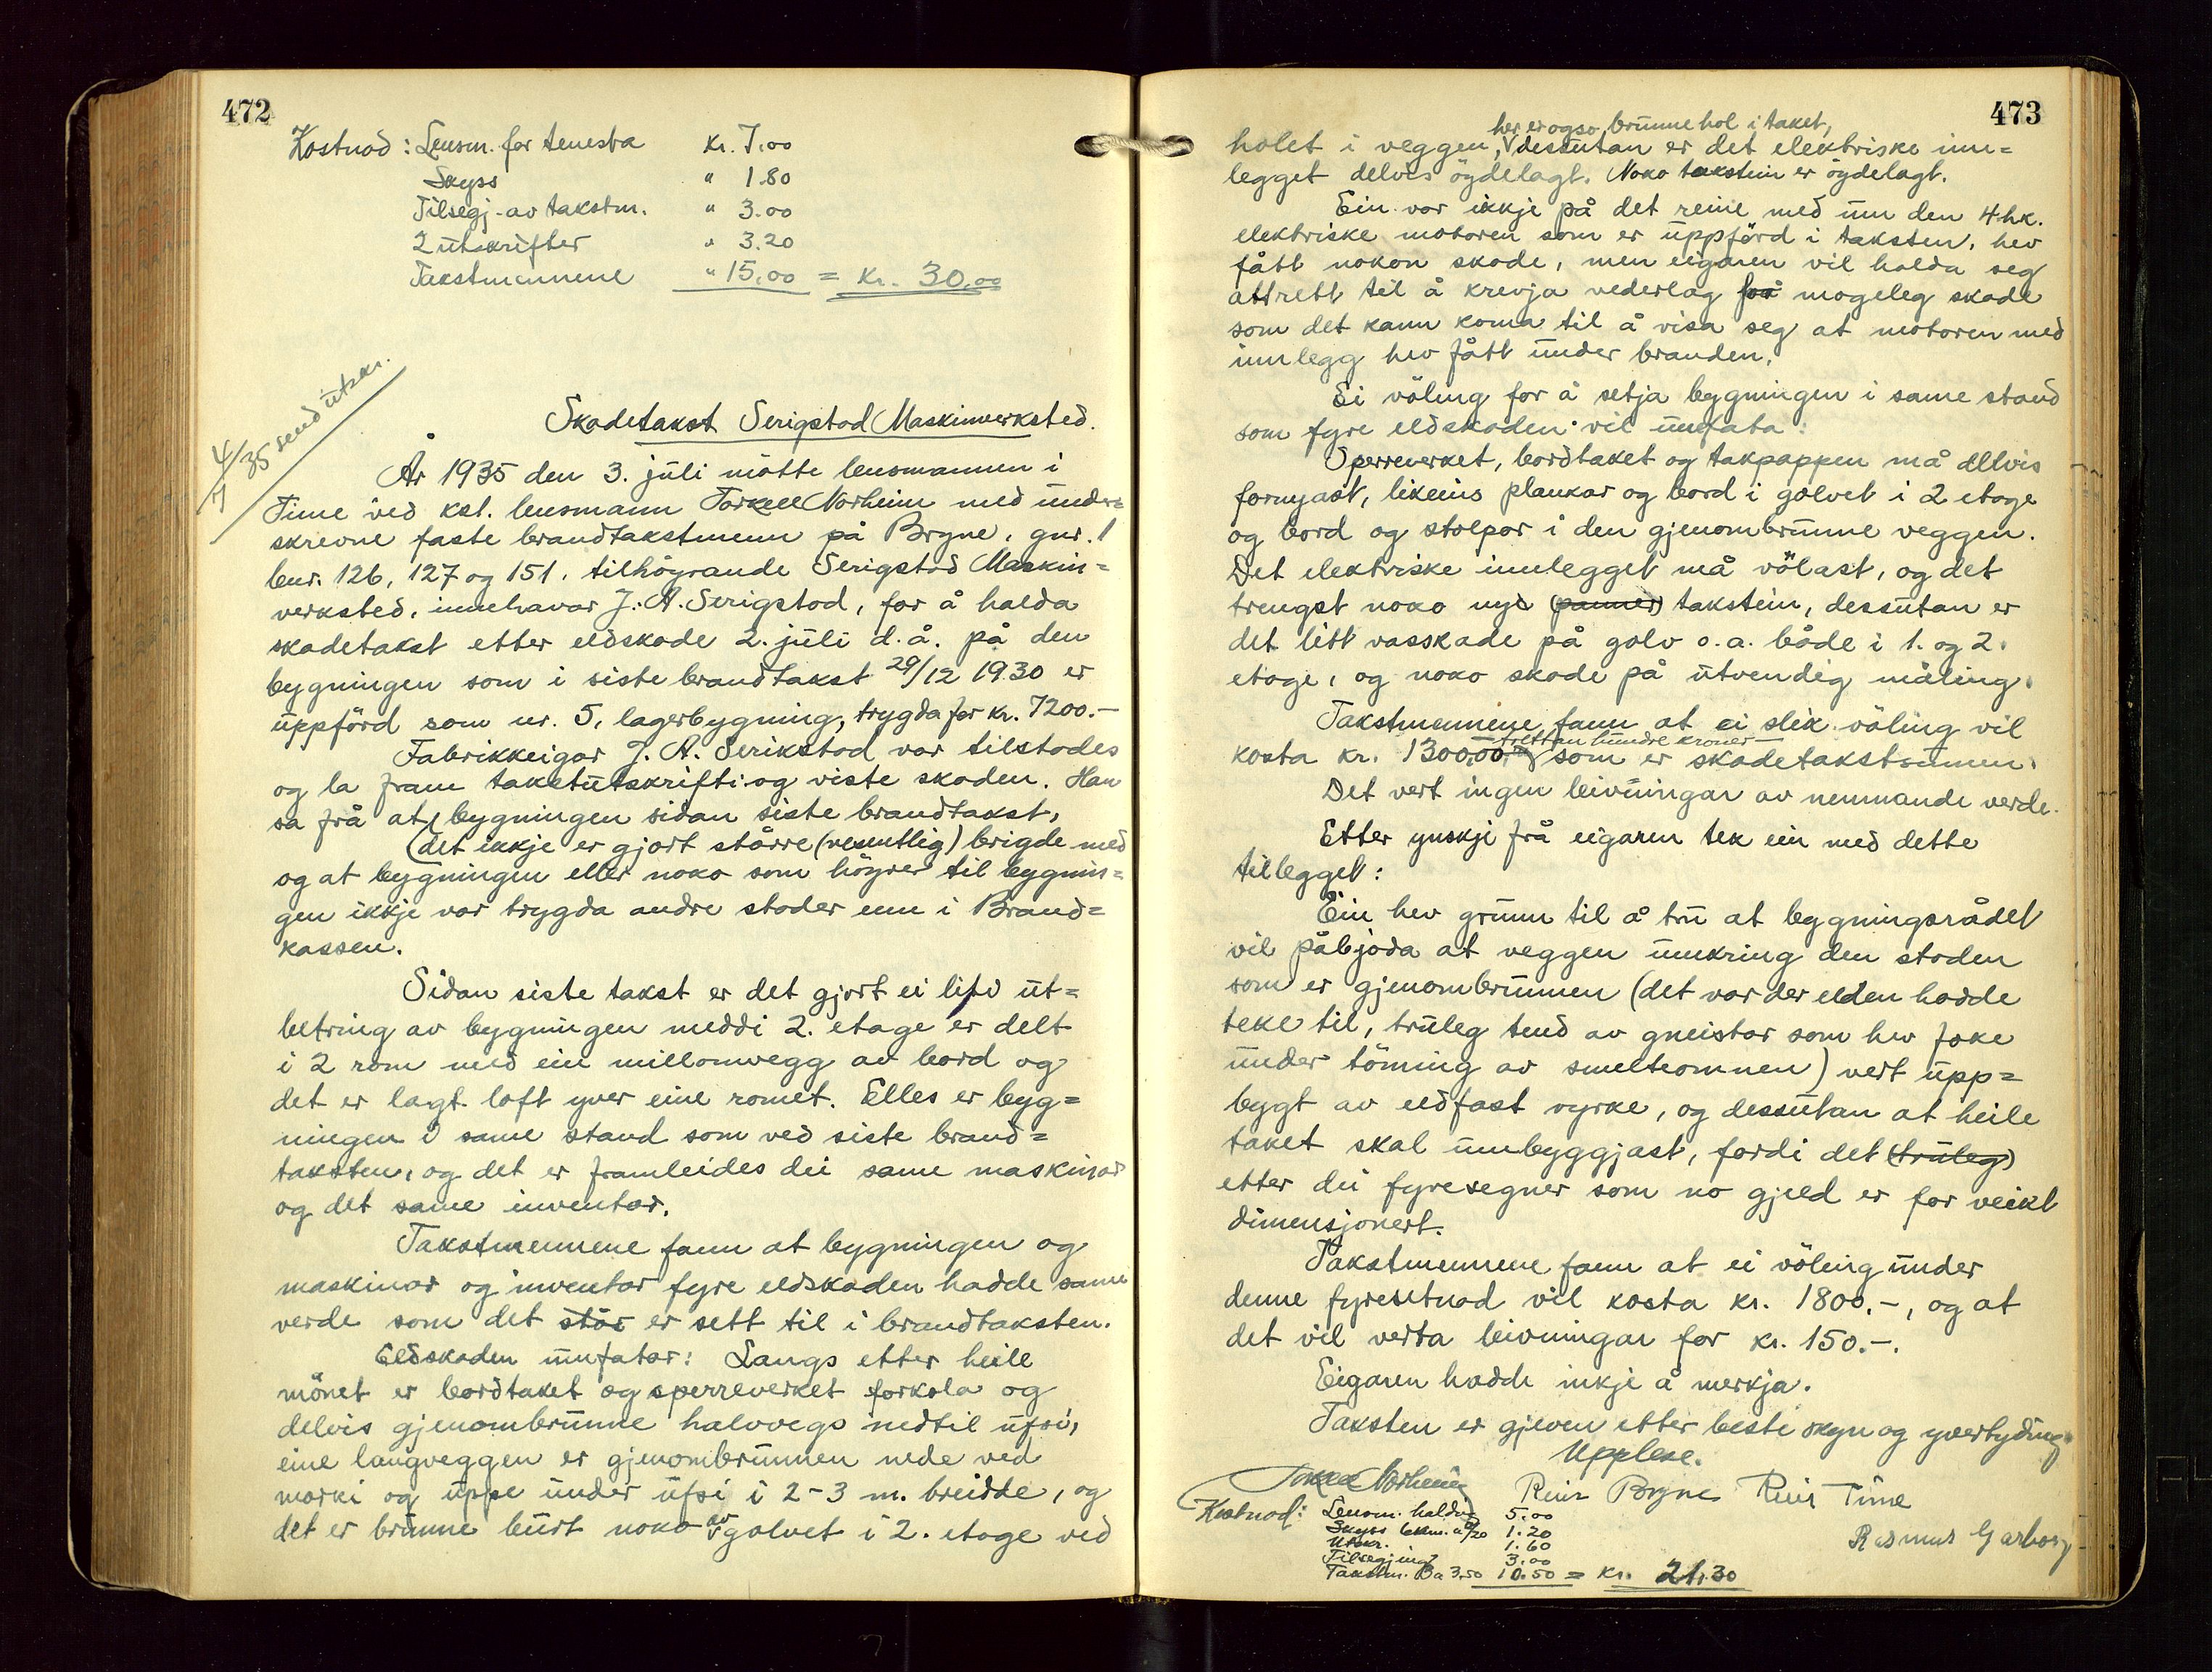 472
Kostnad: Lensm. for tenesta kr. 7.00
Skyss " 1.80
Tilsegj. av takstm. " 3.00
2 utskrifter " 3.20
Takstmennene " 15.00 = kr. 30.00
4/7 35 send utskr.
Skadetakst Serigstad Maskinverksted.
År 1935 den 3. juli møtte lensmannen i
Time ved kst. lensmann Torkell Norheim med under=
skrevne faste brandtakstmenn på Bryne, gnr. 1
bnr. 126, 127 og 151, tilhöyrande Serigstad Maskin=
verksted, innehavar J. A. Serigstad, for å halda
skadetakst etter eldskade 2. juli d.å. på den
bygningen som i siste brandtakst 29/12 1930 er
uppförd som nr. 5, lagerbygning, trygda for kr. 7200.-
Fabrikkeigar J. A. Serikstad var tilstades
og la fram takstutskrift og viste skaden. Han
sa frå at bygningen sidan siste brandtakst,
(det ikkje er gjort större (vesentlig) brigde med
og at bygningen eller noko som höyrer til bygnin=
gen ikkje var trygda andre stader enn i Brand=
kassen.
Sidan siste takst er det gjort ei liti ut=
betring av bygningen meddi 2. etage er delt
i 2 rom med ein millomvegg av bord og
det er lagt loft yver eine romet. Elles er byg=
ningen i same stand som ved siste brand=
taksten, og det er framleides dei same maskinar
og det same inventar.
Takstmennene fann at bygningen og
maskinar og inventar fyre eldskaden hadde same
verde som det står er sett til i brandtaksten.
Eldskaden umfatar: Langs etter heile
mönet er bordtaket og sperreverket forkola og
delvis gjenombrunne halvvegs nedtil ufsi,
eine langveggen er gjenombrunnen nede ved
marki og uppe under ufsi i 2-3 m. breidde, og
det er brunne burt noko av golvet i 2. etage ved
473
her er ogso brunne hol i taket,
holet i veggen, dessutan er det elektriske inn=
legget delvis öydelagt. Noko takstein er öydelagt.
Ein var ikkje på det reine med um den 4 hk.
elektriske motoren som er uppförd i taksten, hev
fått nokon skade, men eigaren vil halda seg
attrett til å krevja vederlag for mogeleg skade
som det kann koma til å visa seg at motoren med
innlegg hev fått under branden.
Ei völing for å setja bygningen i same stand
som fyre eldskaden vil umfata:
Sperreverket, bordtaket og takpappen må delvis
fornyast, likeins plankar og bord i golvet i 2 etage
og bord og stolpar i den gjenombrunne veggen.
Det elektriske innlegget må völast, og det
trengst noko nye (panner) takstein, dessutan er
det litt vasskade på golv o.a. både i 1. og 2.
etage, og noko skade på utvendig måling.
Takstmennene fann at ei slik völing vil
trettan hundre kroner
kosta kr. 1300,00, som er skadetakstsummen.
Det vert ingen leivningar av nemnande verde.
Etter ynskje frå eigaren tek ein med dette
tillegget:
Ein hev grunn til å tru at bygningsrådet
vil påbjoda at veggen umkring den staden
som er gjenombrunnen (det var der elden hadde
teke til, truleg tend av gneistar som hev foke
under töming av smelteomnen) vert upp=
bygt av eldfast vyrke, og dessutan at heile
taket skal umbyggjast, fordi det (truleg)
etter dei fyresegner som no gjeld er for veikt
dimensjonert.
Takstmennene fann at ei völing under
denne fyresetnad vil kosta kr. 1800.-, og at
det vil verta leivningar for kr. 150.-.
Eigaren hadde inkje å merkja.
Taksten er gjeven etter beste skyn og yvertyding.
Upplese.
Torkell Norheim Reier Bryne Reier Time
Rasmus Garborg
Kostnad: Lensm. halding 5.00
Skyss 6 km. a 0/20 1.20
Utskr. 1.60
Tilsegjing 3.00
Takstm. 3 a 3.50 10.50 = kr. 21.30